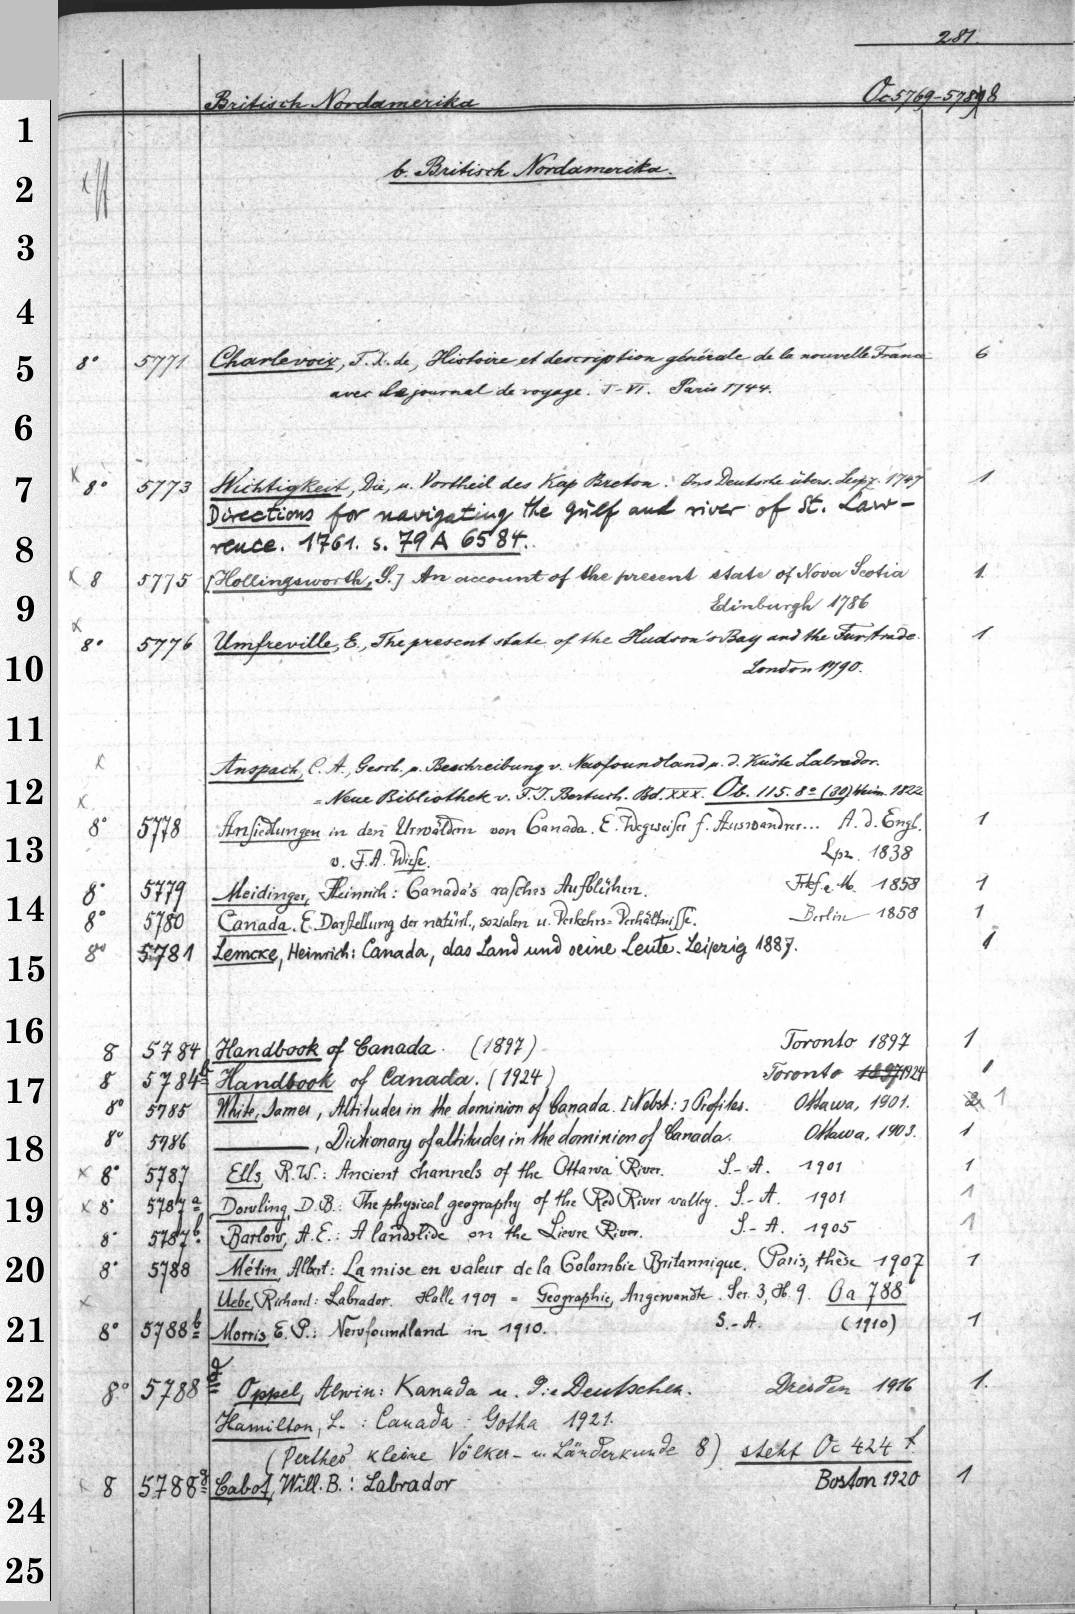 281.
Britisch Nordamerika Oc 5769-5788
1
b. Britisch Nordamerika.
2
3
4
5 8° 5771 Charlevoix, F. X. de, Histoire et description générale de la nouvelle France 6
avec le journal de voyage. I-VI. Paris 1744.
6
7 x 8° 5773 Wichtigkeit, Die, u. Vortheil des Kap Breton. Ins Deutsche übers. Leipz. 1747 1
Directions for navigating the gulf and river of St. Law-
8 rence. 1761. s. 79 A 6584.
x 8 5775 [Hollingsworth, S.] An account of the present state of Nova Scotia 1.
9 Edinburgh 1786
x 8° 5776 Umfreville, E., The present state of the Hudson's Bay and the Fur trade. 1
10 London 1790.
11
x Anspach, C. A., Gesch. u. Beschreibung v. Newfoundland u. d. Küste Labrador.
12 x = Neue Bibliothek v. F. J. Bertuch. Bd. XXX. Ob. 115. 8° (30) Weim. 1822
8° 5778 Ansiedlungen in den Urwäldern von Canada. E. Wegweiser f. Auswandrer... A. d. Engl. 1
13 v. F. A. Wiese. Lpz. 1838
8° 5779 Meidinger, Heinrich: Canada's rasches Aufblühen. Frkf. a. M. 1858 1
14 8° 5780 Canada. E. Darstellung der natürl., sozialen u. Verkehrs-Verhältnisse. Berlin 1858 1
8° 5781 Lemcke, Heinrich: Canada, das Land und seine Leute. Leipzig 1887. 1
15
16 8 5784 Handbook of Canada. (1897) Toronto 1897 1
17 8 5784b Handbook of Canada. (1924) Toronto 1897 1924 1
8° 5785 White, James, Altitudes in the dominion of Canada. [Nebst:] Profiles. Ottawa, 1901. 2 1
18 8° 5786 ———, Dictionary of altitudes in the dominion of Canada. Ottawa, 1903. 1
x 8° 5787 Ells, R. W.: Ancient channels of the Ottawa River. S.-A. 1901 1
19 x 8° 5787a Dowling, D. B.: The physical geography of the Red River valley. S.-A. 1901 1
8° 5787b. Barlow, A. E.: A landslide on the Lievre River. S.-A. 1905 1
20 8° 5788 Métin, Albert: La mise en valeur de la Colombie Britannique. Paris, thèse 1907 1
x Uebe, Richard: Labrador. Halle 1909 = Geographie, Angewandte. Ser. 3, H. 9. Oa 788
21 8° 5788b Morris, E. P.: Newfoundland in 1910. S.-A. (1910) 1
22 8° 5788d Oppel, Alwin: Kanada u. die Deutschen. Dresden 1916 1.
Hamilton, L.: Canada: Gotha 1921.
23 (Perthes' kleine Völker- u. Länderkunde 8) steht Oc 424 f
x 8 5788g Cabot, Will. B.: Labrador Boston 1920 1
24
25